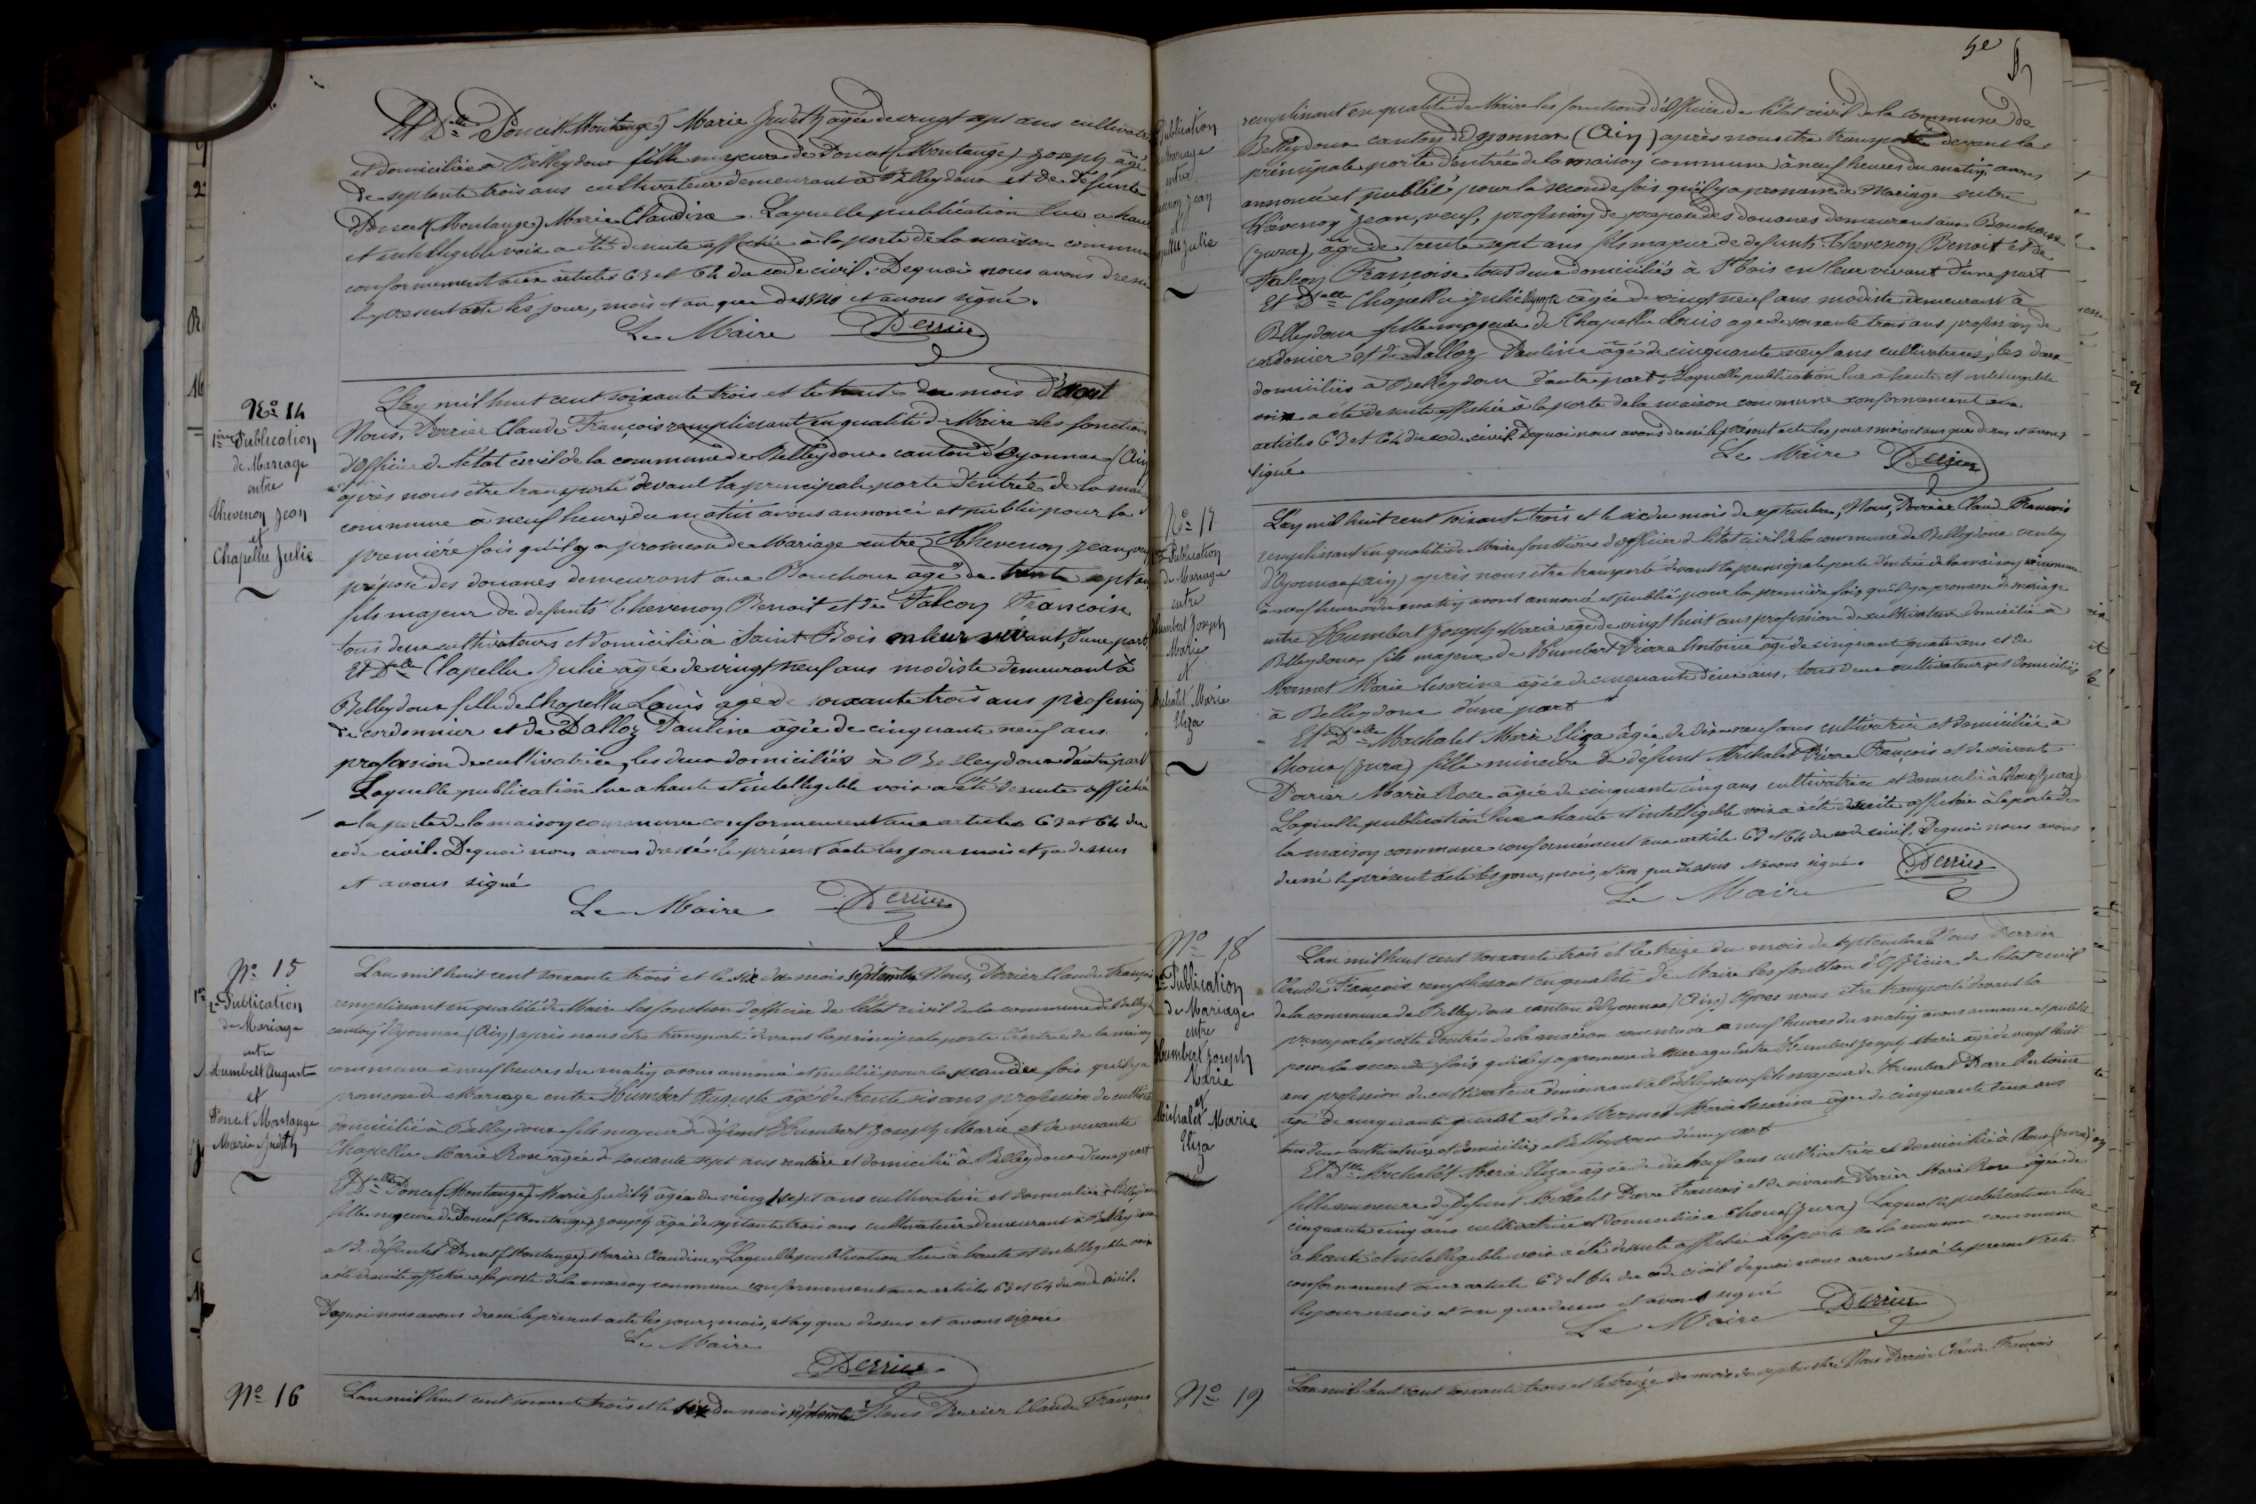 Et Delle Poncet (Montange) Marie Judith âgée de vingt sept ans cultivatrice
et domiciliée à Belleydoux fille majeure de Poncet (Montange) Joseph âgé
de septante trois ans cultivateur demeurant à Belleydoux et de défunte
Poncet (Montange) Marie Claudine. Laquelle publication lue à haute
et intelligible voix a été de suite affichée à la porte de la maison commune
conformement aux articles 63 et 64 du code civil. Dequoi nous avons dressé
le présent acte les jour, mois et an que dessus et avons signé.
Le Maire Perrier
No 14
1ière Publication
de Mariage
entre
Thevenon Jean
et
Chapellu Julie
L'an mil huit cent soixante trois et le trente du mois d'aout
Nous, Perrier Claude François remplissant en qualité de Maire les fonctions
d'officier de l'état civil de la commune de Belleydoux canton d'Oyonnax (Ain)
après nous être transporté devant la principale porte d'entrée de la maison
commune à neuf heures du matin avons annoncé et publié pour la
première fois qu'il y a promesse de Mariage entre Thevenon Jean, veuf
préposé des douanes demeurant aux Bouchoux âgé de trente sept ans
fils majeur de defunts Thevenon Benoit et de Falcon Francoise
tous deux cultivateurs et domiciliés à Saint Bois en leur vivant, d'une part
Et Delle Chapellu Julie âgée de vingt neuf ans modiste demeurant à
Belleydoux fille de Chapellu Louis âgé de soixante trois ans profession
de cordonnier et de Dalloz Pauline âgée de cinquante neuf ans
profession de cultivatrice, les deux domiciliés à Belleydoux d'autre part
Laquelle publication lue a haute et intelligible voix a été de suite affichée
a la porte de la maison commune conformement aux articles 63 et 64 du
code civil. Dequoi nous avons dressé le présent acte les jour mois et an dessus
et avons signé
Le Maire Perrier
No 15
2e Publication
de Mariage
entre
Humbert August
et
Poncet Montange
Marie Judith
L'an mil huit cent soixante trois et le six du mois septembre Nous, Perrier Claude François
remplissant en qualité de Maire les fonction d'officier de l'état civil de la commune de Belleydoux
canton d'Oyonnax (Ain) après nous etre transporté devant la principale porte d'entrée de la maison
commune à neuf heures du matin avons annoncé et publié pour la seconde fois qu'il y a
promesse de Mariage entre Humbert Auguste âgé de trente six ans profession de cultivateur
domicilié à Belleydoux fils majeur de défunt Humbert Joseph Marie et de vivante
Chapellu Marie Rose âgée de soixante sept ans et domicilié à Belleydoux d'une part
Et Delle Poncet (Montange) Marie Judith âgée de vingt sept ans cultivatrice et domiciliée à Belleydoux
fille majeure de Poncet (Montange) Joseph âgé de septante trois ans cultivateur demeurant à Belleydoux
et de défunte Poncet (Montange) Marie Claudine, Laquelle publication lue à haute et intelligible voix
a été de suite affichée a la porte de la maison commune conformement aux articles 63 et 64 du code civil.
Dequoi nous avons dressé le present acte les jour, mois, et an que dessus et avons signé
Le Maire
Perrier
No 16
L'an mil huit cent soixante trois et le six du mois septembre Nous Perrier Claude François
5e
Publication
Mariage
entre
Jean
et
Julie
remplissant en qualité de Maire les fonctions d'officier de l'état civil de la commune de
Belleydoux canton d'Oyonnax (Ain) après nous etre transporté devant la
principale porte d'entrée de la maison commune à neuf heures du matin avons
annoncé et publié pour la seconde fois qu'il y a promesse de Mariage entre
Thevenon Jean, veuf, profession de préposé des douanes demeurant aux Bouchoux
(Jura), âgé de trente sept ans fils majeur de defunts Thevenon Benoit et de
Falcon Francoise tous deux domiciliés à St Bois en leur vivant d'une part
Et Delle Chapellu Julie âgée de vingt neuf ans modiste demeurant à
Belleydoux fille majeure de Chapellu Louis age de soixante trois ans profession de
cordonier et de Dalloz Pauline âgé de cinquante neuf ans cultivatrice, les deux
domiciliés à Belleydoux d'autre part. Laquelle publication lue à haute et intelligible
voix a été de suite affichée à la porte de la maison commune conformement aux
articles 63 et 64 du code civil. Dequoi nous avons dressé le présent acte les jour mois et an que dessus et avons
signé.
Le Maire Perrier
No 17
1re Publication
de Mariage
entre
Humbert Joseph
Marie
et
Michalet Marie
Eliza
L'an mil huit cent soixante trois et le six du mois de septembre, Nous, Perrier Claude Francois
remplissant en qualité de Maire fonctions d'officier de l'état civil de la commune de Belleydoux canton
d'Oyonnax (Ain) après nous etre transporté devant la principale porte d'entrée de la maison commune
à neuf heures du matin avons annoncé et publié pour la première fois qu'il y a promesse de mariage
entre Humbert Joseph Marie age de vingt huit ans profession de cultivateur domicilié à
Belleydoux fils majeur de Humbert Pierre Antoine âgé de cinquante quatre ans et de
Mermet Marie Cesarine âgée de cinquante deux ans, tous deux cultivateurs et domiciliés
à Belleydoux d'une part
Et Delle Michalet Marie Eliza âgée de dix neuf ans cultivatrice et domiciliée à
Choux (Jura) fille mineure de défunt Michalet Pierre François et de vivante
Perrier Marie Rose âgée de cinquante cinq ans cultivatrice et domicilié à Choux (Jura)
Laquelle publication lue a haute et intelligible voix a été de suite affichée à la porte de
la maison commune conformément aux article 63 et 64 du code civil. Dequoi nous avons
dressé le présent acte les jour, mois, et an que dessus et avons signé.
Le Maire Perrier
No 18
2e Publication
de Mariage
entre
Humbert Joseph
Marie
et
Michalet Marie
Eliza
L'an mil huit cent soixante trois et le treize du mois de septembre Nous Perrier
Claude François remplissant en qualité de Maire les fonction d'Officier de l'état civil
de la commune de Belleydoux canton d'Oyonnax (Ain) Apres nous etre transporté devant la
principale porte d'entrée de la maison commune a neuf heures du matin avons annoncé et publié
pour la seconde fois qu'il y a promesse de mariage entre Humbert Joseph Marie agé de vingt huit
ans profession de cultivateur demeurant à Belleydoux fils majeur de Humbert Pierre Antoine
agé de cinquante quatre et de Mermet Marie Cesarine agee de cinquante deux ans
tous deux cultivateurs et domiciliés a Belleydoux d'une part
Et Delle Michalet Marie Eliza âgée de dix neuf ans cultivatrice et domiciliée à Choux (Jura)
fille mineure de defunt Michalet Pierre Francois et de vivante Perrier Marie Rose âgée de
cinquante cinq ans cultivatrice et domiciliée a Choux (Jura) Laquelle publication lue
a haute et intelligible voix a été de suite affichée à la porte de la maison commune
conformement aux article 63 et 64 du code civil dequoi nous avons dressé le present acte
les jour mois et an que dessus et avons signé
Le Maire Perrier
No 19
L'an mil huit cent soixante trois et le treize du mois de septembre Nous Perrier Claude François